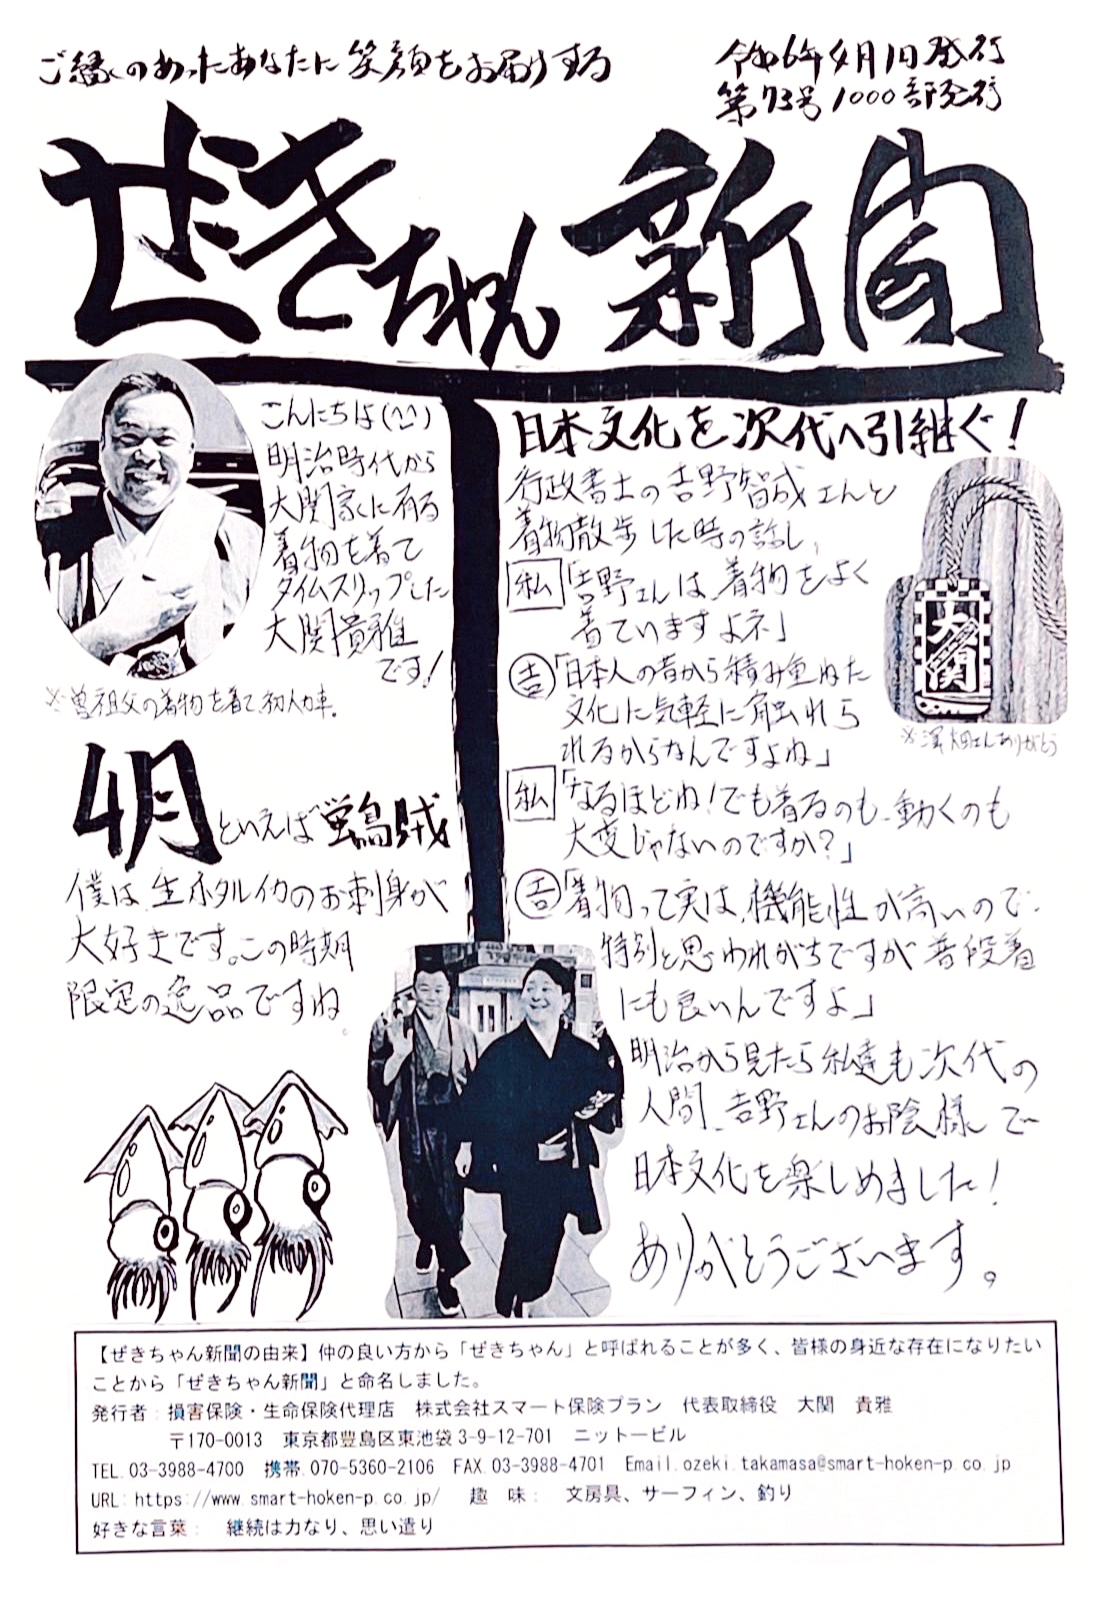 ご縁のあったあなたに笑顔をお届けする
令和6年4月1日発行
第73号1000部発行
ぜきちゃん新聞
こんにちは(^^)
明治時代から
大関家に有る
着物を着て
タイムスリップした
大関貴雅
です!
※曽祖父の着物を着て、初人力車。
4月といえば蛍烏賊
僕は、生ホタルイカのお刺身が
大好きです。この時期
限定の逸品ですね。
日本文化を次代へ引継ぐ!
行政書士の吉野智成さんと
着物散歩した時の話し。
私「吉野さんは、着物をよく
着ていますよネ」
吉「日本人の昔から積み重ねた
文化に気軽に触れら
れるからなんですよね」
私「なるほどね!でも着るのも、動くのも
大変じゃないのですか?」
吉「着物って実は、機能性が高いので、
特別と思われがちですが普段着
にも良いんですよ」
明治から見たら私達も次代の
人間、吉野さんのお陰様で
日本文化を楽しめました!
ありがとうございます。
大関
※澤田さんありがとう
【ぜきちゃん新聞の由来】仲の良い方から「ぜきちゃん」と呼ばれることが多く、皆様の身近な存在になりたい
ことから「ぜきちゃん新聞」と命名しました。
発行者: 損害保険・生命保険代理店 株式会社スマート保険プラン 代表取締役 大関 貴雅
〒170-0013 東京都豊島区東池袋3-9-12-701 ニットービル
TEL.03-3988-4700 携帯.070-5360-2106 FAX.03-3988-4701 Email.ozeki.takamasa@smart-hoken-p.co.jp
URL:https://www.smart-hoken-p.co.jp/ 趣 味: 文房具、サーフィン、釣り
好きな言葉: 継続は力なり、思い遣り